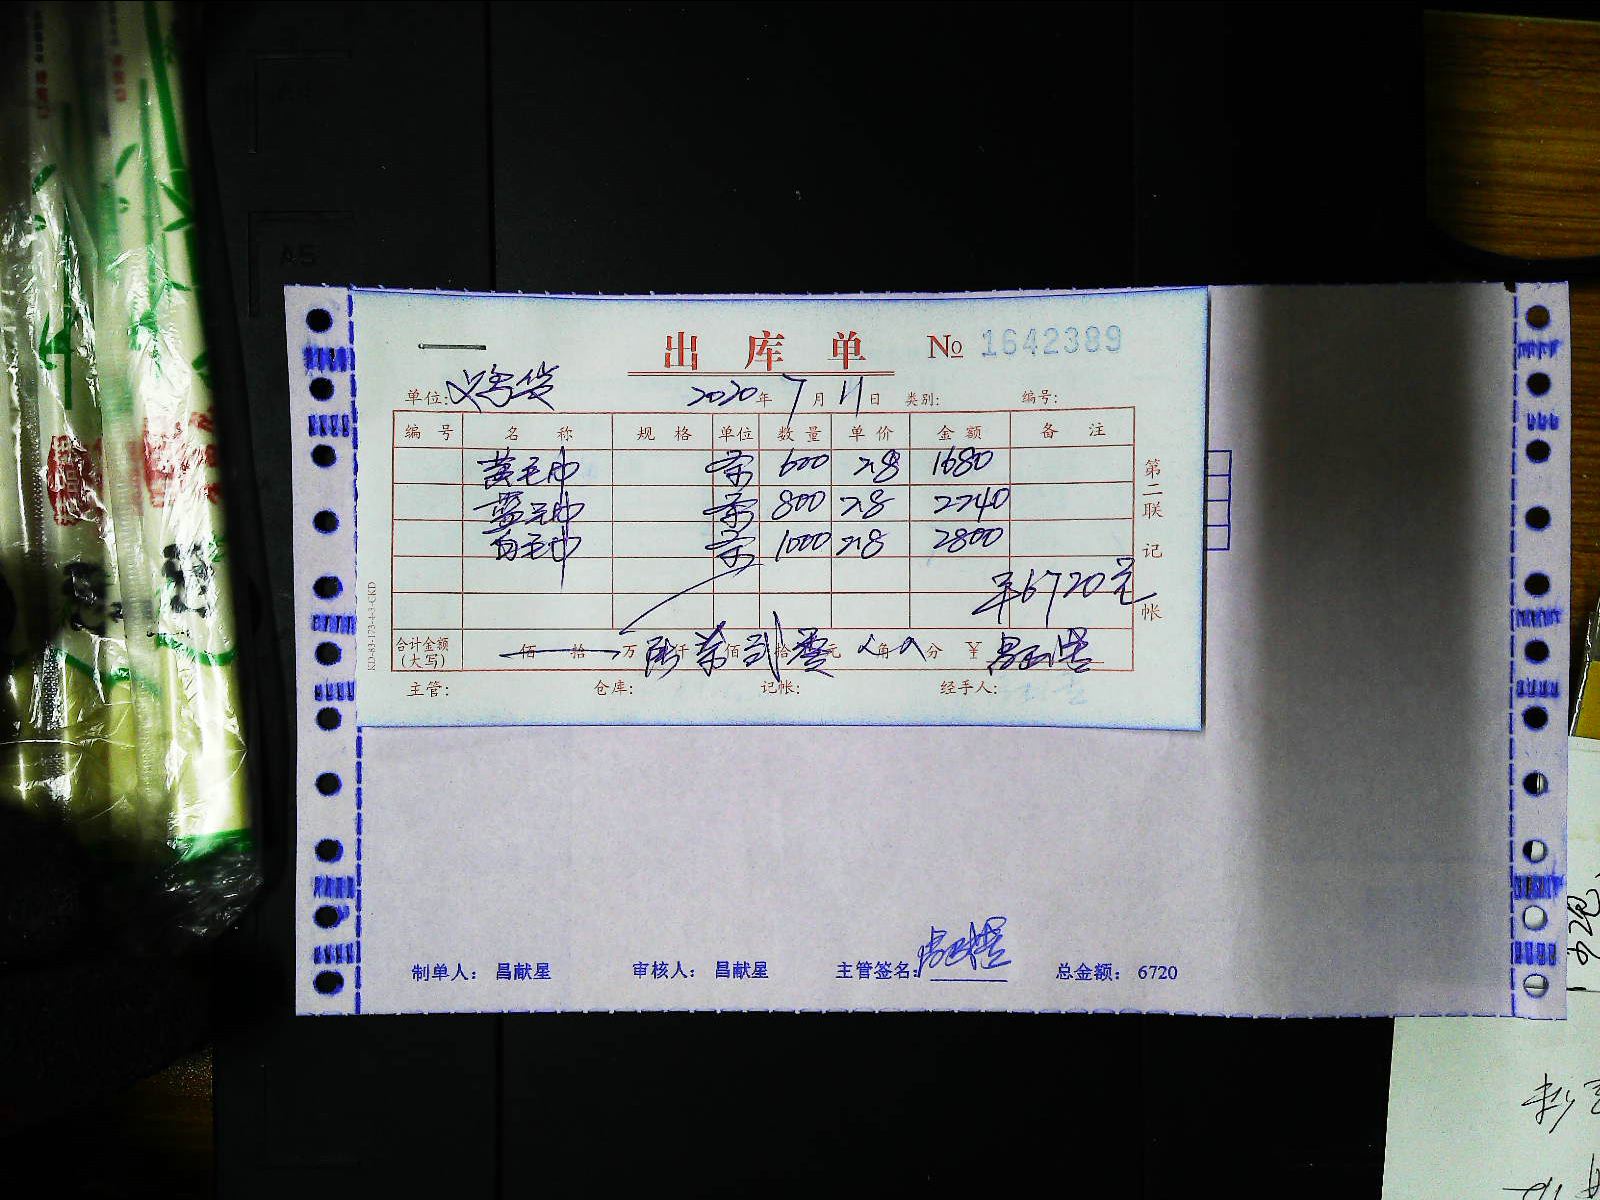 A5
出库单 № 1642389
单位: 2020年7月11日 类别: 编号:
编号 名称 规格 单位 数量 单价 金额 备注
黄毛巾 条 600 2.8 1680
蓝毛巾 条 800 2.8 2240
白毛巾 条 1000 2.8 2800
¥6720元
合计金额(大写) 佰 拾 万 陆仟 柒佰 贰拾 零元 角 分 ¥
主管: 仓库: 记帐: 经手人:
第二联 记帐
制单人: 昌献星 审核人: 昌献星 主管签名: 总金额: 6720